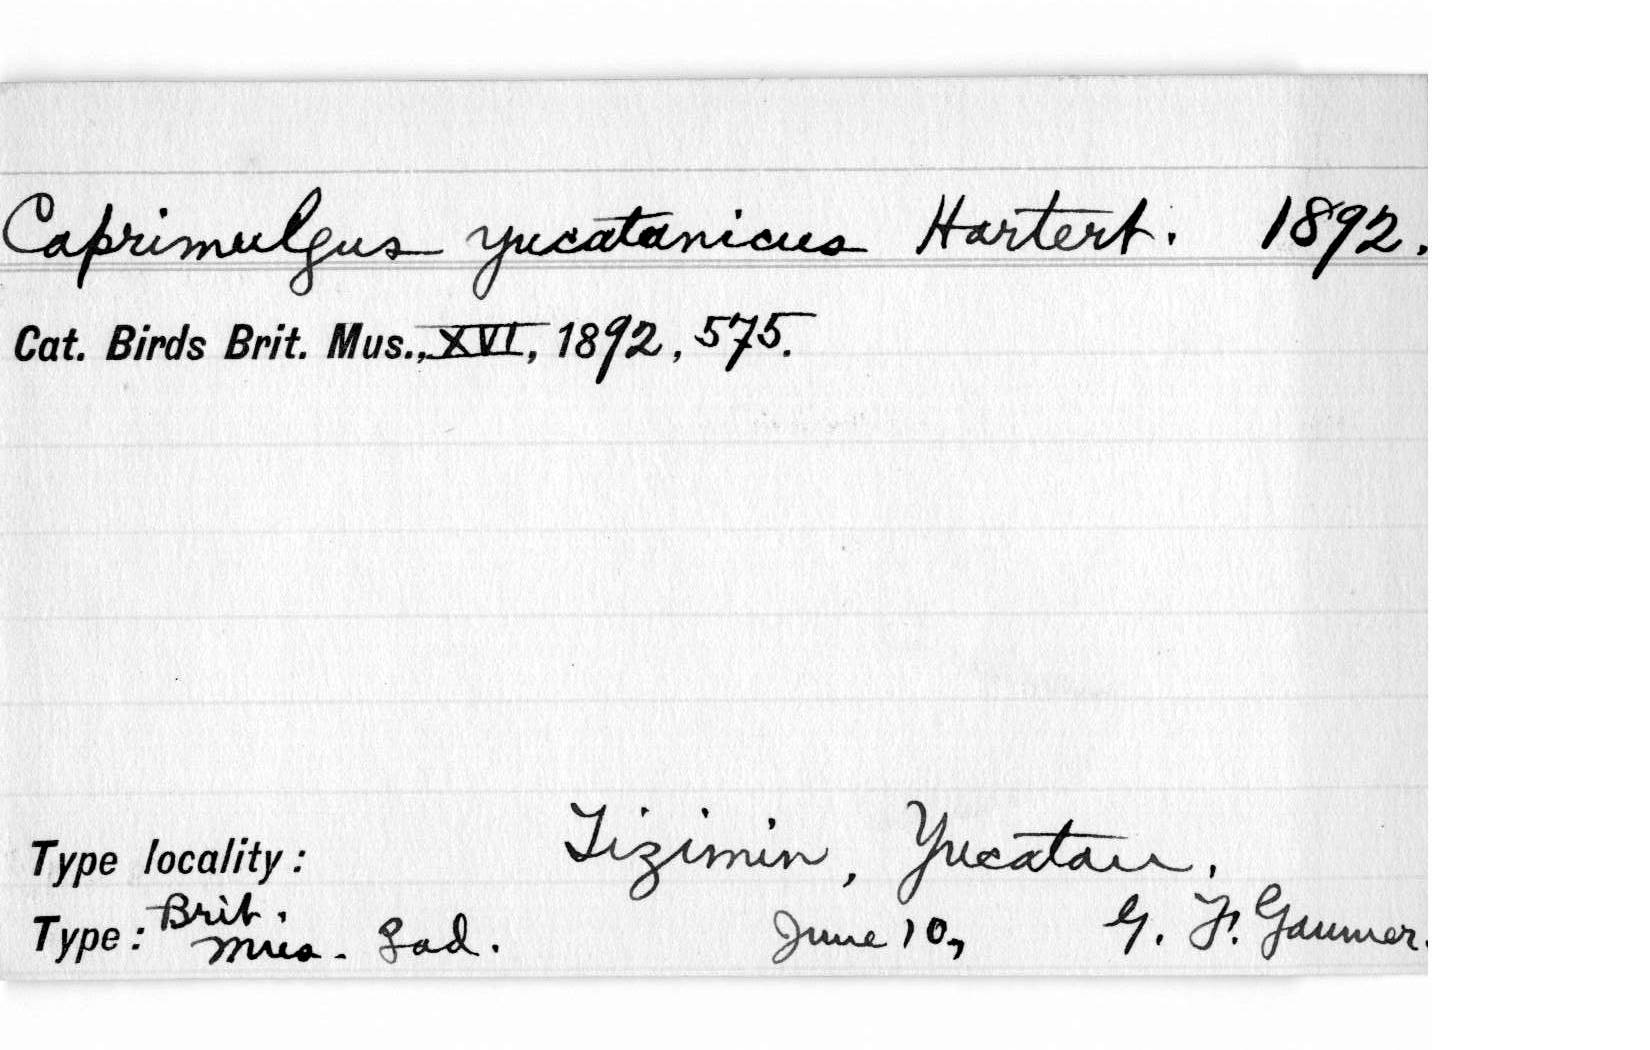 Caprimulgus yucatanicus Hartert. 1892.
Cat. Birds Brit. Mus., XVI, 1892, 575.
Type locality: Tizimin, Yucatan.
Type: Brit. Mus. ad. June 10, G. F. Gaumer.